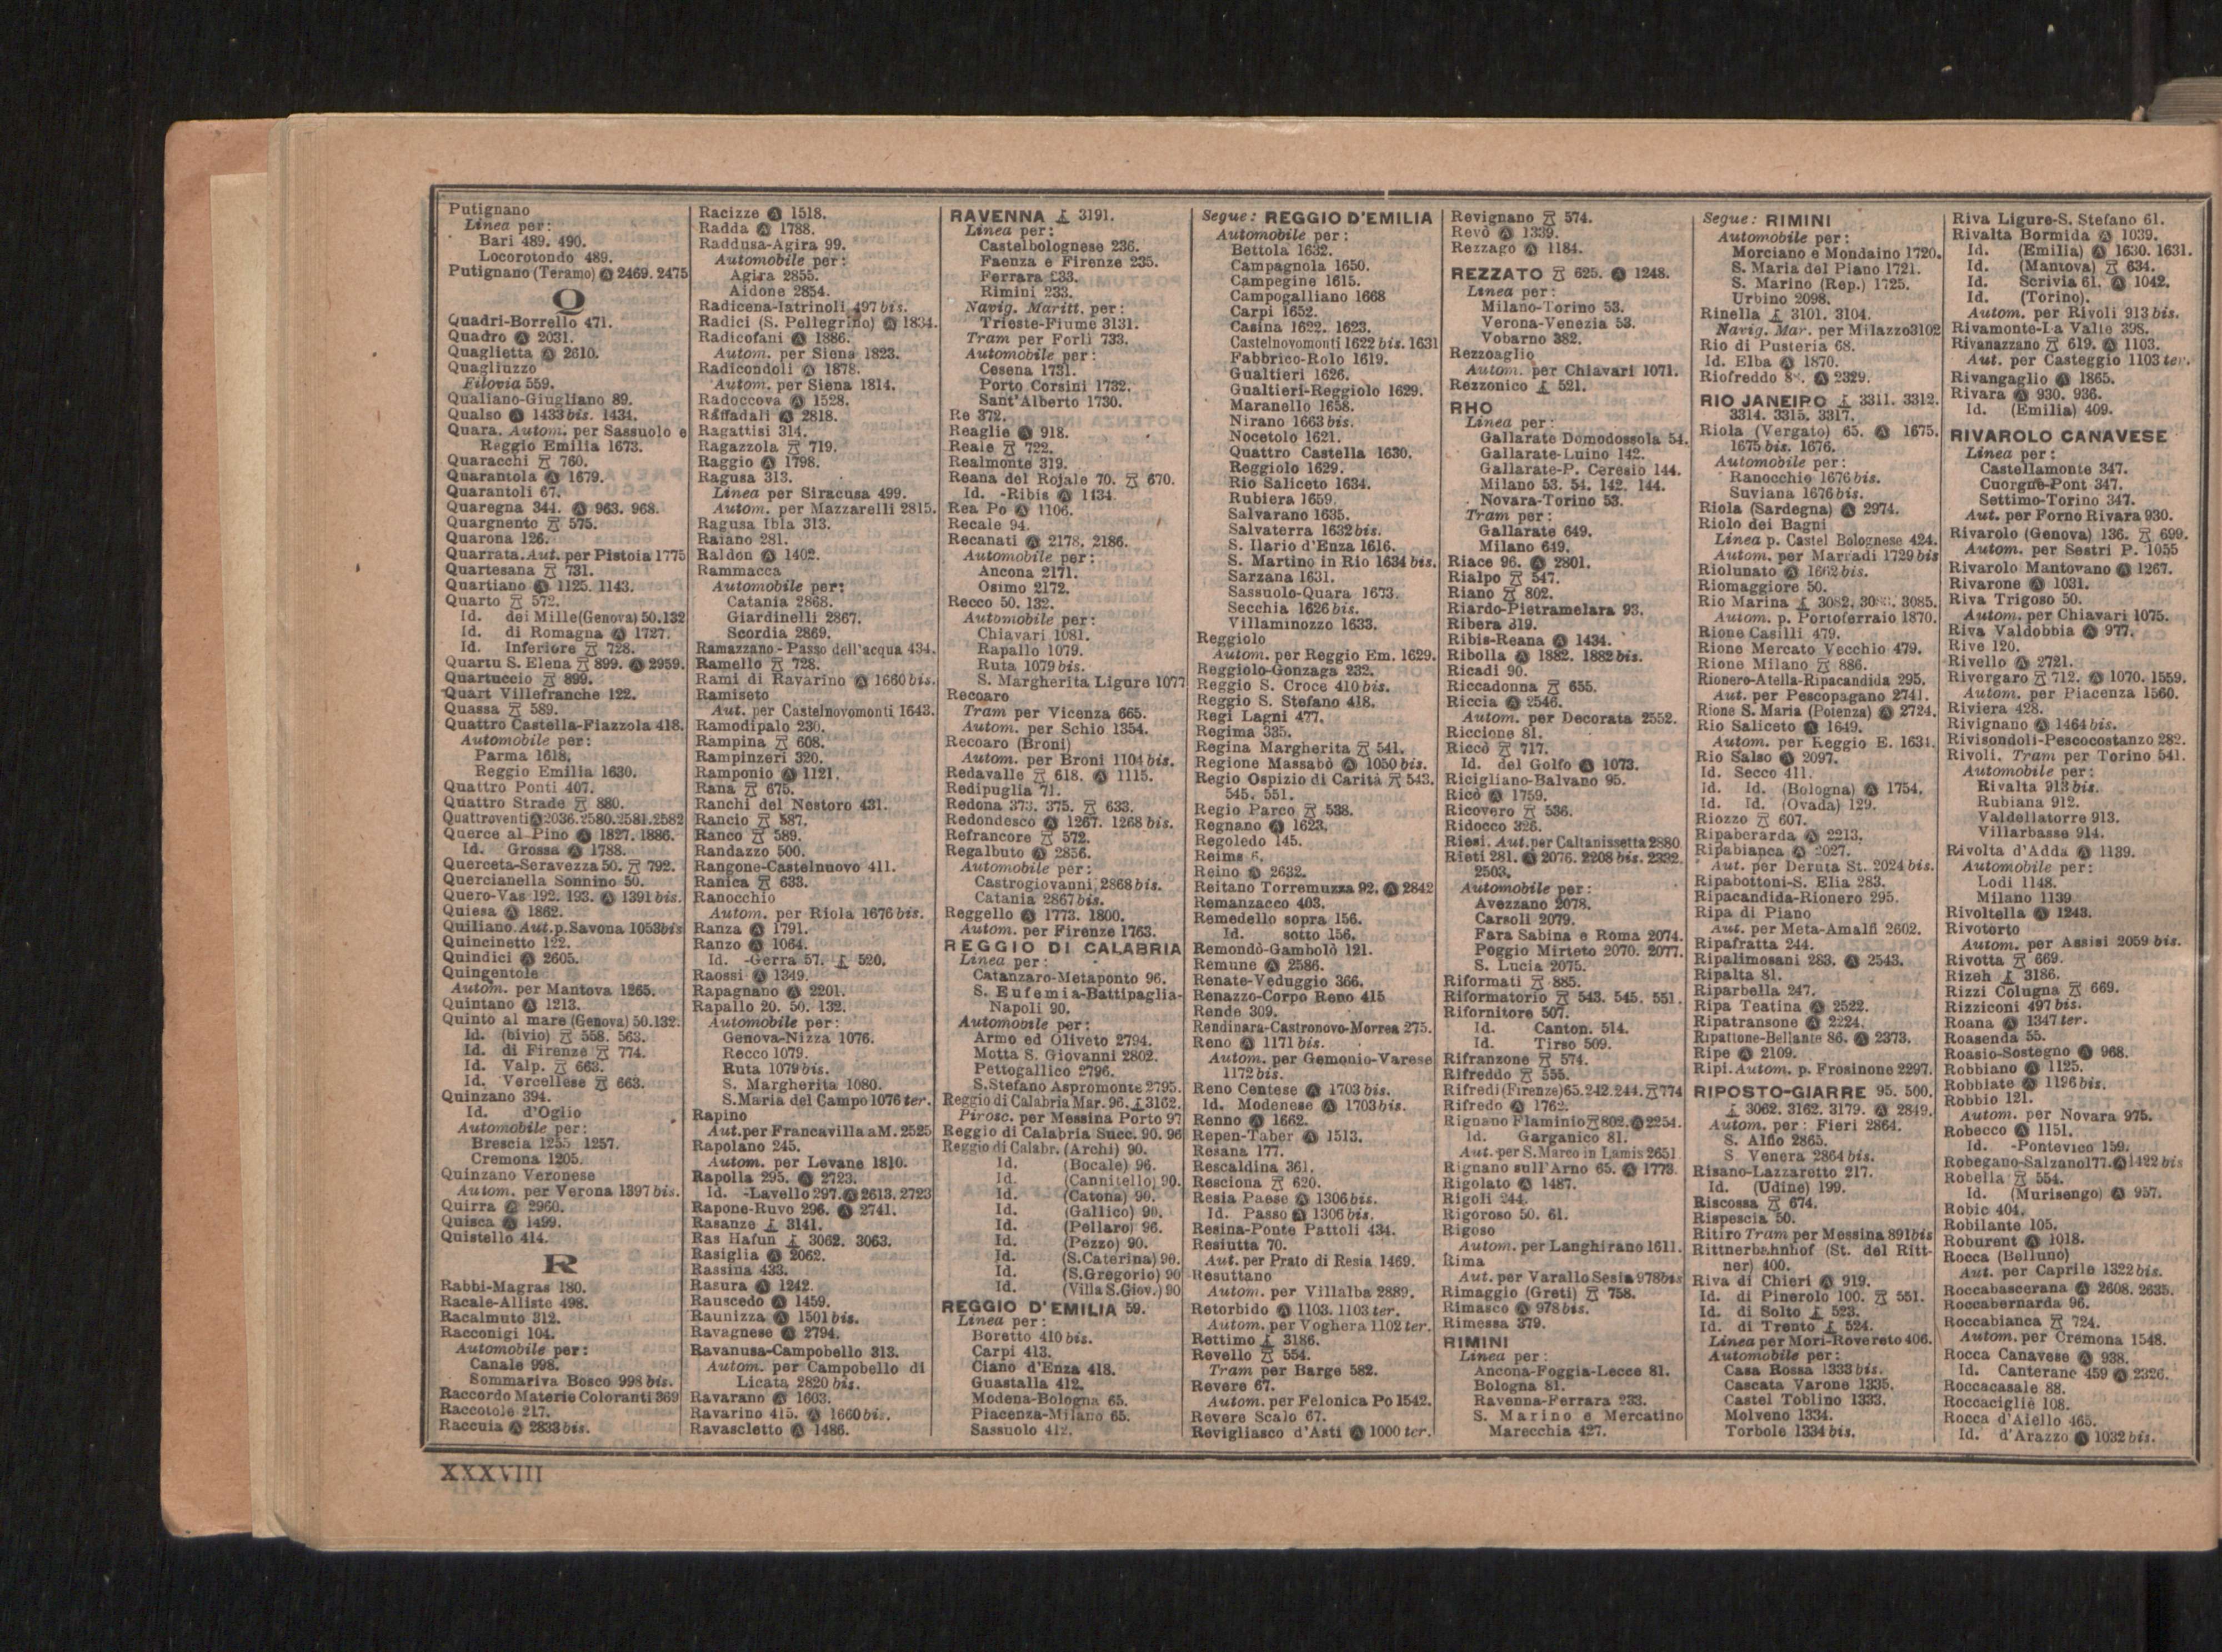 Putignano
Linea per:
Bari 489. 490.
Locorotondo 489.
Putignano (Teramo) Ⓐ 2469. 2475
Q
Quadri-Borrello 471.
Quadro Ⓐ 2031.
Quaglietta Ⓐ 2610.
Quagliuzzo
Filovia 559.
Qualiano-Giugliano 89.
Qualso Ⓐ 1433 bis. 1434.
Quara. Autom. per Sassuolo e
Reggio Emilia 1673.
Quaracchi 760.
Quarantola Ⓐ 1679.
Quarantoli 67.
Quaregna 344. Ⓐ 963. 968.
Quargnento 575.
Quarona 126.
Quarrata. Aut. per Pistoia 1775
Quartesana 731.
Quartiano Ⓐ 1125. 1143.
Quarto 572.
Id. dei Mille (Genova) 50.132
Id. di Romagna Ⓐ 1727.
Id. Inferiore 728.
Quartu S. Elena 899. Ⓐ 2959.
Quartuccio 899.
Quart Villefranche 122.
Quassa 589.
Quattro Castella-Piazzola 418.
Automobile per:
Parma 1618.
Reggio Emilia 1630.
Quattro Ponti 407.
Quattro Strade 880.
Quattroventi Ⓐ 2036. 2580. 2581. 2582
Querce al Pino Ⓐ 1827. 1886.
Id. Grossa Ⓐ 1788.
Querceta-Seravezza 50. 792.
Quercianella Sonnino 50.
Quero-Vas 192. 193. Ⓐ 1391 bis.
Quiesa Ⓐ 1862.
Quiliano. Aut. p. Savona 1053 bis
Quincinetto 122.
Quindici Ⓐ 2605.
Quingentole
Autom. per Mantova 1265.
Quintano Ⓐ 1213.
Quinto al mare (Genova) 50.132.
Id. (bivio) 558. 563.
Id. di Firenze 774.
Id. Valp. 663.
Id. Vercellese 663.
Quinzano 394.
Id. d'Oglio
Automobile per:
Brescia 1255 1257.
Cremona 1205.
Quinzano Veronese
Autom. per Verona 1397 bis.
Quirra Ⓐ 2960.
Quisca Ⓐ 1499.
Quistello 414.
R
Rabbi-Magras 180.
Racale-Alliste 498.
Racalmuto 312.
Racconigi 104.
Automobile per:
Canale 998.
Sommariva Bosco 998 bis.
Raccordo Materie Coloranti 369
Raccotole 217.
Raccuia Ⓐ 2833 bis.
Racizze Ⓐ 1518.
Radda Ⓐ 1788.
Raddusa-Agira 99.
Automobile per:
Agira 2855.
Aidone 2854.
Radicena-Iatrinoli 497 bis.
Radici (S. Pellegrino) Ⓐ 1834.
Radicofani Ⓐ 1886.
Autom. per Siena 1823.
Radicondoli Ⓐ 1878.
Autom. per Siena 1814.
Radoccova Ⓐ 1528.
Raffadali Ⓐ 2818.
Ragattisi 314.
Ragazzola 719.
Raggio Ⓐ 1798.
Ragusa 313.
Linea per Siracusa 499.
Autom. per Mazzarelli 2815.
Ragusa Ibla 313.
Raiano 281.
Raldon Ⓐ 1402.
Rammacca
Automobile per:
Catania 2868.
Giardinelli 2867.
Scordia 2869.
Ramazzano - Passo dell'acqua 434.
Ramello 728.
Rami di Ravarino Ⓐ 1660 bis.
Ramiseto
Aut. per Castelnovomonti 1643.
Ramodipalo 230.
Rampina 608.
Rampinzeri 320.
Ramponio Ⓐ 1121.
Rana 675.
Ranchi del Nestoro 431.
Rancio 587.
Ranco 589.
Randazzo 500.
Rangone-Castelnuovo 411.
Ranica 633.
Ranocchio
Autom. per Riola 1676 bis.
Ranza Ⓐ 1791.
Ranzo Ⓐ 1064.
Id. -Gerra 57. 520.
Raossi Ⓐ 1349.
Rapagnano Ⓐ 2201.
Rapallo 20. 50. 132.
Automobile per:
Genova-Nizza 1076.
Recco 1079.
Ruta 1079 bis.
S. Margherita 1080.
S. Maria del Campo 1076 ter.
Rapino
Aut. per Francavilla a M. 2525
Rapolano 245.
Autom. per Levane 1810.
Rapolla 295. Ⓐ 2723.
Id. -Lavello 297. Ⓐ 2613. 2723
Rapone-Ruvo 296. Ⓐ 2741.
Rasanze 3141.
Ras Hafun 3062. 3063.
Rasiglia Ⓐ 2062.
Rassina 433.
Rasura Ⓐ 1242.
Rauscedo Ⓐ 1459.
Raunizza Ⓐ 1501 bis.
Ravagnese Ⓐ 2794.
Ravanusa-Campobello 313.
Autom. per Campobello di
Licata 2820 bis.
Ravarano Ⓐ 1603.
Ravarino 415. Ⓐ 1660 bis.
Ravascletto Ⓐ 1486.
RAVENNA 3191.
Linea per:
Castelbolognese 236.
Faenza e Firenze 235.
Ferrara 233.
Rimini 233.
Navig. Maritt. per:
Trieste-Fiume 3131.
Tram per Forlì 733.
Automobile per:
Cesena 1731.
Porto Corsini 1732.
Sant'Alberto 1730.
Re 372.
Reaglie Ⓐ 918.
Reale 722.
Realmonte 319.
Reana del Rojale 70. 670.
Id. -Ribis Ⓐ 1434.
Rea Po Ⓐ 1106.
Recale 94.
Recanati Ⓐ 2178. 2186.
Automobile per:
Ancona 2171.
Osimo 2172.
Recco 50. 132.
Automobile per:
Chiavari 1081.
Rapallo 1079.
Ruta 1079 bis.
S. Margherita Ligure 1077
Recoaro
Tram per Vicenza 665.
Autom. per Schio 1354.
Recoaro (Broni)
Autom. per Broni 1104 bis.
Redavalle 618. Ⓐ 1115.
Redipuglia 71.
Redona 373. 375. 633.
Redondesco Ⓐ 1267. 1268 bis.
Refrancore 572.
Regalbuto Ⓐ 2856.
Automobile per:
Castrogiovanni 2868 bis.
Catania 2867 bis.
Reggello Ⓐ 1773. 1800.
Autom. per Firenze 1763.
REGGIO DI CALABRIA
Linea per:
Catanzaro-Metaponto 96.
S. Eufemia-Battipaglia-
Napoli 90.
Automobile per:
Armo ed Oliveto 2794.
Motta S. Giovanni 2802.
Pettogallico 2796.
S. Stefano Aspromonte 2795.
Reggio di Calabria Mar. 96. 3162.
Pirosc. per Messina Porto 97
Reggio di Calabria Succ. 90. 96
Reggio di Calabr. (Archi) 90.
Id. (Bocale) 96.
Id. (Cannitello) 90.
Id. (Catona) 90.
Id. (Gallico) 90.
Id. (Pellaro) 96.
Id. (Pezzo) 90.
Id. (S. Caterina) 90.
Id. (S. Gregorio) 90
Id. (Villa S. Giov.) 90
REGGIO D'EMILIA 59.
Linea per:
Boretto 410 bis.
Carpi 413.
Ciano d'Enza 418.
Guastalla 412.
Modena-Bologna 65.
Piacenza-Milano 65.
Sassuolo 412.
Segue: REGGIO D'EMILIA
Automobile per:
Bettola 1632.
Campagnola 1650.
Campegine 1615.
Campogalliano 1668
Carpi 1652.
Casina 1622. 1623.
Castelnovomonti 1622 bis. 1631
Fabbrico-Rolo 1619.
Gualtieri 1626.
Gualtieri-Reggiolo 1629.
Maranello 1658.
Nirano 1663 bis.
Nocetolo 1621.
Quattro Castella 1630.
Reggiolo 1629.
Rio Saliceto 1634.
Rubiera 1659.
Salvarano 1635.
Salvaterra 1632 bis.
S. Ilario d'Enza 1616.
S. Martino in Rio 1634 bis.
Sarzana 1631.
Sassuolo-Quara 1673.
Secchia 1626 bis.
Villaminozzo 1633.
Reggiolo
Autom. per Reggio Em. 1629.
Reggiolo-Gonzaga 232.
Reggio S. Croce 410 bis.
Reggio S. Stefano 418.
Regi Lagni 477.
Regima 335.
Regina Margherita 541.
Regione Massabò Ⓐ 1050 bis.
Regio Ospizio di Carità 543.
545. 551.
Regio Parco 538.
Regnano Ⓐ 1623.
Regoledo 145.
Reims 6.
Reino Ⓐ 2632.
Reitano Torremuzza 92. Ⓐ 2842
Remanzacco 403.
Remedello sopra 156.
Id. sotto 156.
Remondò-Gambolò 121.
Remune Ⓐ 2586.
Renate-Veduggio 366.
Renazzo-Corpo Reno 415
Rende 309.
Rendinara-Castronovo-Morrea 275.
Reno Ⓐ 1171 bis.
Autom. per Gemonio-Varese
1172 bis.
Reno Centese Ⓐ 1703 bis.
Id. Modenese Ⓐ 1703 bis.
Renno Ⓐ 1662.
Repen-Taber Ⓐ 1513.
Resana 177.
Rescaldina 361.
Resciona 620.
Resia Paese Ⓐ 1306 bis.
Id. Passo Ⓐ 1306 bis.
Resina-Ponte Pattoli 434.
Resiutta 70.
Aut. per Prato di Resia 1469.
Resuttano
Autom. per Villalba 2889.
Retorbido Ⓐ 1103. 1103 ter.
Autom. per Voghera 1102 ter.
Rettimo 3186.
Revello 554.
Tram per Barge 582.
Revere 67.
Autom. per Felonica Po 1542.
Revere Scalo 67.
Revigliasco d'Asti Ⓐ 1000 ter.
Revignano 574.
Revò Ⓐ 1339.
Rezzago Ⓐ 1184.
REZZATO 625. Ⓐ 1248.
Linea per:
Milano-Torino 53.
Verona-Venezia 53.
Vobarno 382.
Rezzoaglio
Autom. per Chiavari 1071.
Rezzonico 521.
RHO
Linea per:
Gallarate Domodossola 54.
Gallarate-Luino 142.
Gallarate-P. Ceresio 144.
Milano 53. 54. 142. 144.
Novara-Torino 53.
Tram per:
Gallarate 649.
Milano 649.
Riace 96. Ⓐ 2801.
Rialpo 547.
Riano 802.
Riardo-Pietramelara 93.
Ribera 319.
Ribis-Reana Ⓐ 1434.
Ribolla Ⓐ 1882. 1882 bis.
Ricadi 90.
Riccadonna 655.
Riccia Ⓐ 2546.
Autom. per Decorata 2552.
Riccione 81.
Riccò 717.
Id. del Golfo Ⓐ 1073.
Ricigliano-Balvano 95.
Ricò Ⓐ 1759.
Ricovero 536.
Ridocco 326.
Riesi. Aut. per Caltanissetta 2880
Rieti 281. Ⓐ 2076. 2208 bis. 2332.
2503.
Automobile per:
Avezzano 2078.
Carsoli 2079.
Fara Sabina e Roma 2074.
Poggio Mirteto 2070. 2077.
S. Lucia 2075.
Riformati 885.
Riformatorio 543. 545. 551.
Rifornitore 507.
Id. Canton. 514.
Id. Tirso 509.
Rifranzone 574.
Rifreddo 555.
Rifredi (Firenze) 65. 242. 244. 774
Rifredo Ⓐ 1762.
Rignano Flaminio 802. Ⓐ 2254.
Id. Garganico 81.
Aut. per S. Marco in Lamis 2651
Rignano sull'Arno 65. Ⓐ 1773.
Rigolato Ⓐ 1487.
Rigoli 244.
Rigoroso 50. 61.
Rigoso
Autom. per Langhirano 1611.
Rima
Aut. per Varallo Sesia 978 bis
Rimaggio (Greti) 758.
Rimasco Ⓐ 978 bis.
Rimessa 379.
RIMINI
Linea per:
Ancona-Foggia-Lecce 81.
Bologna 81.
Ravenna-Ferrara 233.
S. Marino e Mercatino
Marecchia 427.
Segue: RIMINI
Automobile per:
Morciano e Mondaino 1720.
S. Maria del Piano 1721.
S. Marino (Rep.) 1725.
Urbino 2098.
Rinella 3101. 3104.
Navig. Mar. per Milazzo 3102
Rio di Pusteria 68.
Id. Elba Ⓐ 1870.
Riofreddo Ⓐ 2329.
RIO JANEIRO 3311. 3312.
3314. 3315. 3317.
Riola (Vergato) 65. Ⓐ 1675.
1675 bis. 1676.
Automobile per:
Ranocchio 1676 bis.
Suviana 1676 bis.
Riola (Sardegna) Ⓐ 2974.
Riolo dei Bagni
Linea p. Castel Bolognese 424.
Autom. per Marradi 1729 bis
Riolunato Ⓐ 1662 bis.
Riomaggiore 50.
Rio Marina 3082. 3085.
Autom. p. Portoferraio 1870.
Rione Casilli 479.
Rione Mercato Vecchio 479.
Rione Milano 886.
Rionero-Atella-Ripacandida 295.
Aut. per Pescopagano 2741.
Rione S. Maria (Potenza) Ⓐ 2724.
Rio Saliceto Ⓐ 1649.
Autom. per Reggio E. 1634.
Rio Salso Ⓐ 2097.
Id. Secco 411.
Id. Id. (Bologna) Ⓐ 1754.
Id. Id. (Ovada) 129.
Riozzo 607.
Ripaberarda Ⓐ 2213.
Ripabianca Ⓐ 2027.
Aut. per Deruta St. 2024 bis.
Ripabottoni-S. Elia 283.
Ripacandida-Rionero 295.
Ripa di Piano
Aut. per Meta-Amalfi 2602.
Ripafratta 244.
Ripalimosani 283. Ⓐ 2543.
Ripalta 81.
Riparbella 247.
Ripa Teatina Ⓐ 2522.
Ripatransone Ⓐ 2224.
Ripattone-Bellante 86. Ⓐ 2373.
Ripe Ⓐ 2109.
Ripi. Autom. p. Frosinone 2297.
RIPOSTO-GIARRE 95. 500.
3062. 3162. 3179. Ⓐ 2849.
Autom. per: Fieri 2864.
S. Alfio 2865.
S. Venera 2864 bis.
Risano-Lazzaretto 217.
Id. (Udine) 199.
Riscossa 674.
Rispescia 50.
Ritiro Tram per Messina 891 bis
Rittnerbahnhof (St. del Ritt-
ner) 400.
Riva di Chieri Ⓐ 919.
Id. di Pinerolo 100. 551.
Id. di Solto 523.
Id. di Trento 524.
Linea per Mori-Rovereto 406.
Automobile per:
Casa Rossa 1333 bis.
Cascata Varone 1335.
Castel Toblino 1333.
Molveno 1334.
Torbole 1334 bis.
Riva Ligure-S. Stefano 61.
Rivalta Bormida Ⓐ 1039.
Id. (Emilia) Ⓐ 1630. 1631.
Id. (Mantova) 634.
Id. Scrivia 61. Ⓐ 1042.
Id. (Torino).
Autom. per Rivoli 913 bis.
Rivamonte-La Valle 398.
Rivanazzano 619. Ⓐ 1103.
Aut. per Casteggio 1103 ter.
Rivangaglio Ⓐ 1865.
Rivara Ⓐ 930. 936.
Id. (Emilia) 409.
RIVAROLO CANAVESE
Linea per:
Castellamonte 347.
Cuorgnè-Pont 347.
Settimo-Torino 347.
Aut. per Forno Rivara 930.
Rivarolo (Genova) 136. 699.
Autom. per Sestri P. 1055
Rivarolo Mantovano Ⓐ 1267.
Rivarone Ⓐ 1031.
Riva Trigoso 50.
Autom. per Chiavari 1075.
Riva Valdobbia Ⓐ 977.
Rive 120.
Rivello Ⓐ 2721.
Rivergaro 712. Ⓐ 1070. 1559.
Autom. per Piacenza 1560.
Riviera 428.
Rivignano Ⓐ 1464 bis.
Rivisondoli-Pescocostanzo 282.
Rivoli. Tram per Torino 541.
Automobile per:
Rivalta 913 bis.
Rubiana 912.
Valdellatorre 913.
Villarbasse 914.
Rivolta d'Adda Ⓐ 1139.
Automobile per:
Lodi 1148.
Milano 1139
Rivoltella Ⓐ 1243.
Rivotorto
Autom. per Assisi 2059 bis.
Rivotta 669.
Rizeh 3186.
Rizzi Colugna 669.
Rizziconi 497 bis.
Roana Ⓐ 1347 ter.
Roasenda 55.
Roasio-Sostegno Ⓐ 968.
Robbiano Ⓐ 1125.
Robbiate Ⓐ 1196 bis.
Robbio 121.
Autom. per Novara 975.
Robecco Ⓐ 1151.
Id. -Pontevico 159.
Robegano-Salzano 177. Ⓐ 1422 bis
Robella 554.
Id. (Murisengo) Ⓐ 957.
Robic 404.
Robilante 105.
Roburent Ⓐ 1018.
Rocca (Belluno)
Aut. per Caprile 1322 bis.
Roccabascerana Ⓐ 2608. 2635.
Roccabernarda 96.
Roccabianca 724.
Autom. per Cremona 1548.
Rocca Canavese Ⓐ 938.
Id. Canterano 459 Ⓐ 2326.
Roccacasale 88.
Roccaciglie 108.
Rocca d'Aiello 465.
Id. d'Arazzo Ⓐ 1032 bis.
XXXVIII